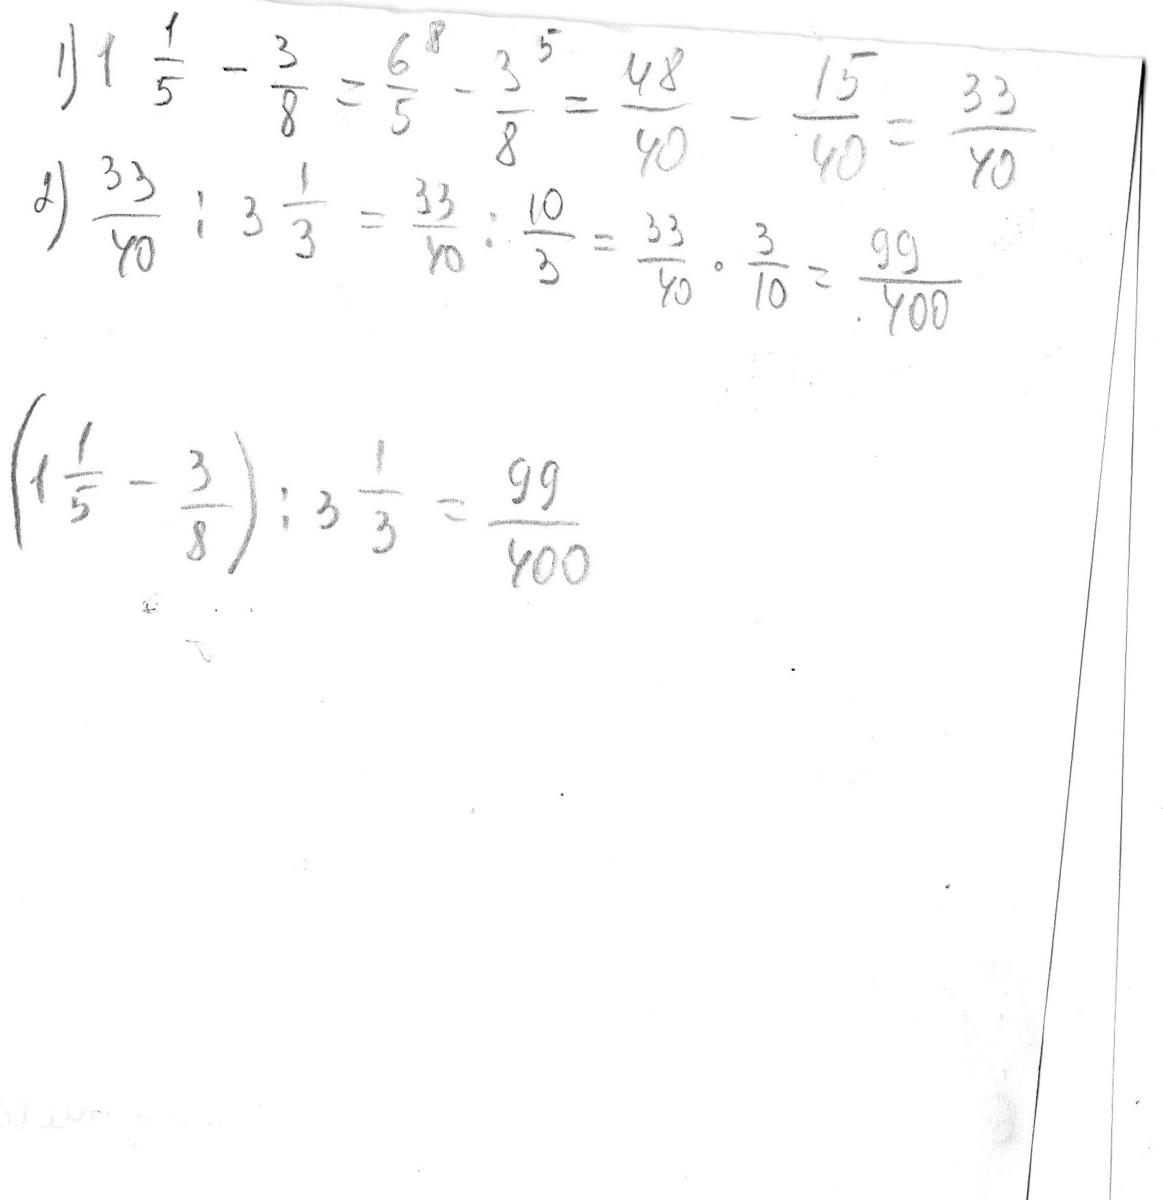 1) 1 1/5 - 3/8 = 6/5 ⁸ - 3/8 ⁵ = 48/40 - 15/40 = 33/40
2) 33/40 : 3 1/3 = 33/40 : 10/3 = 33/40 · 3/10 = 99/400
(1 1/5 - 3/8) : 3 1/3 = 99/400